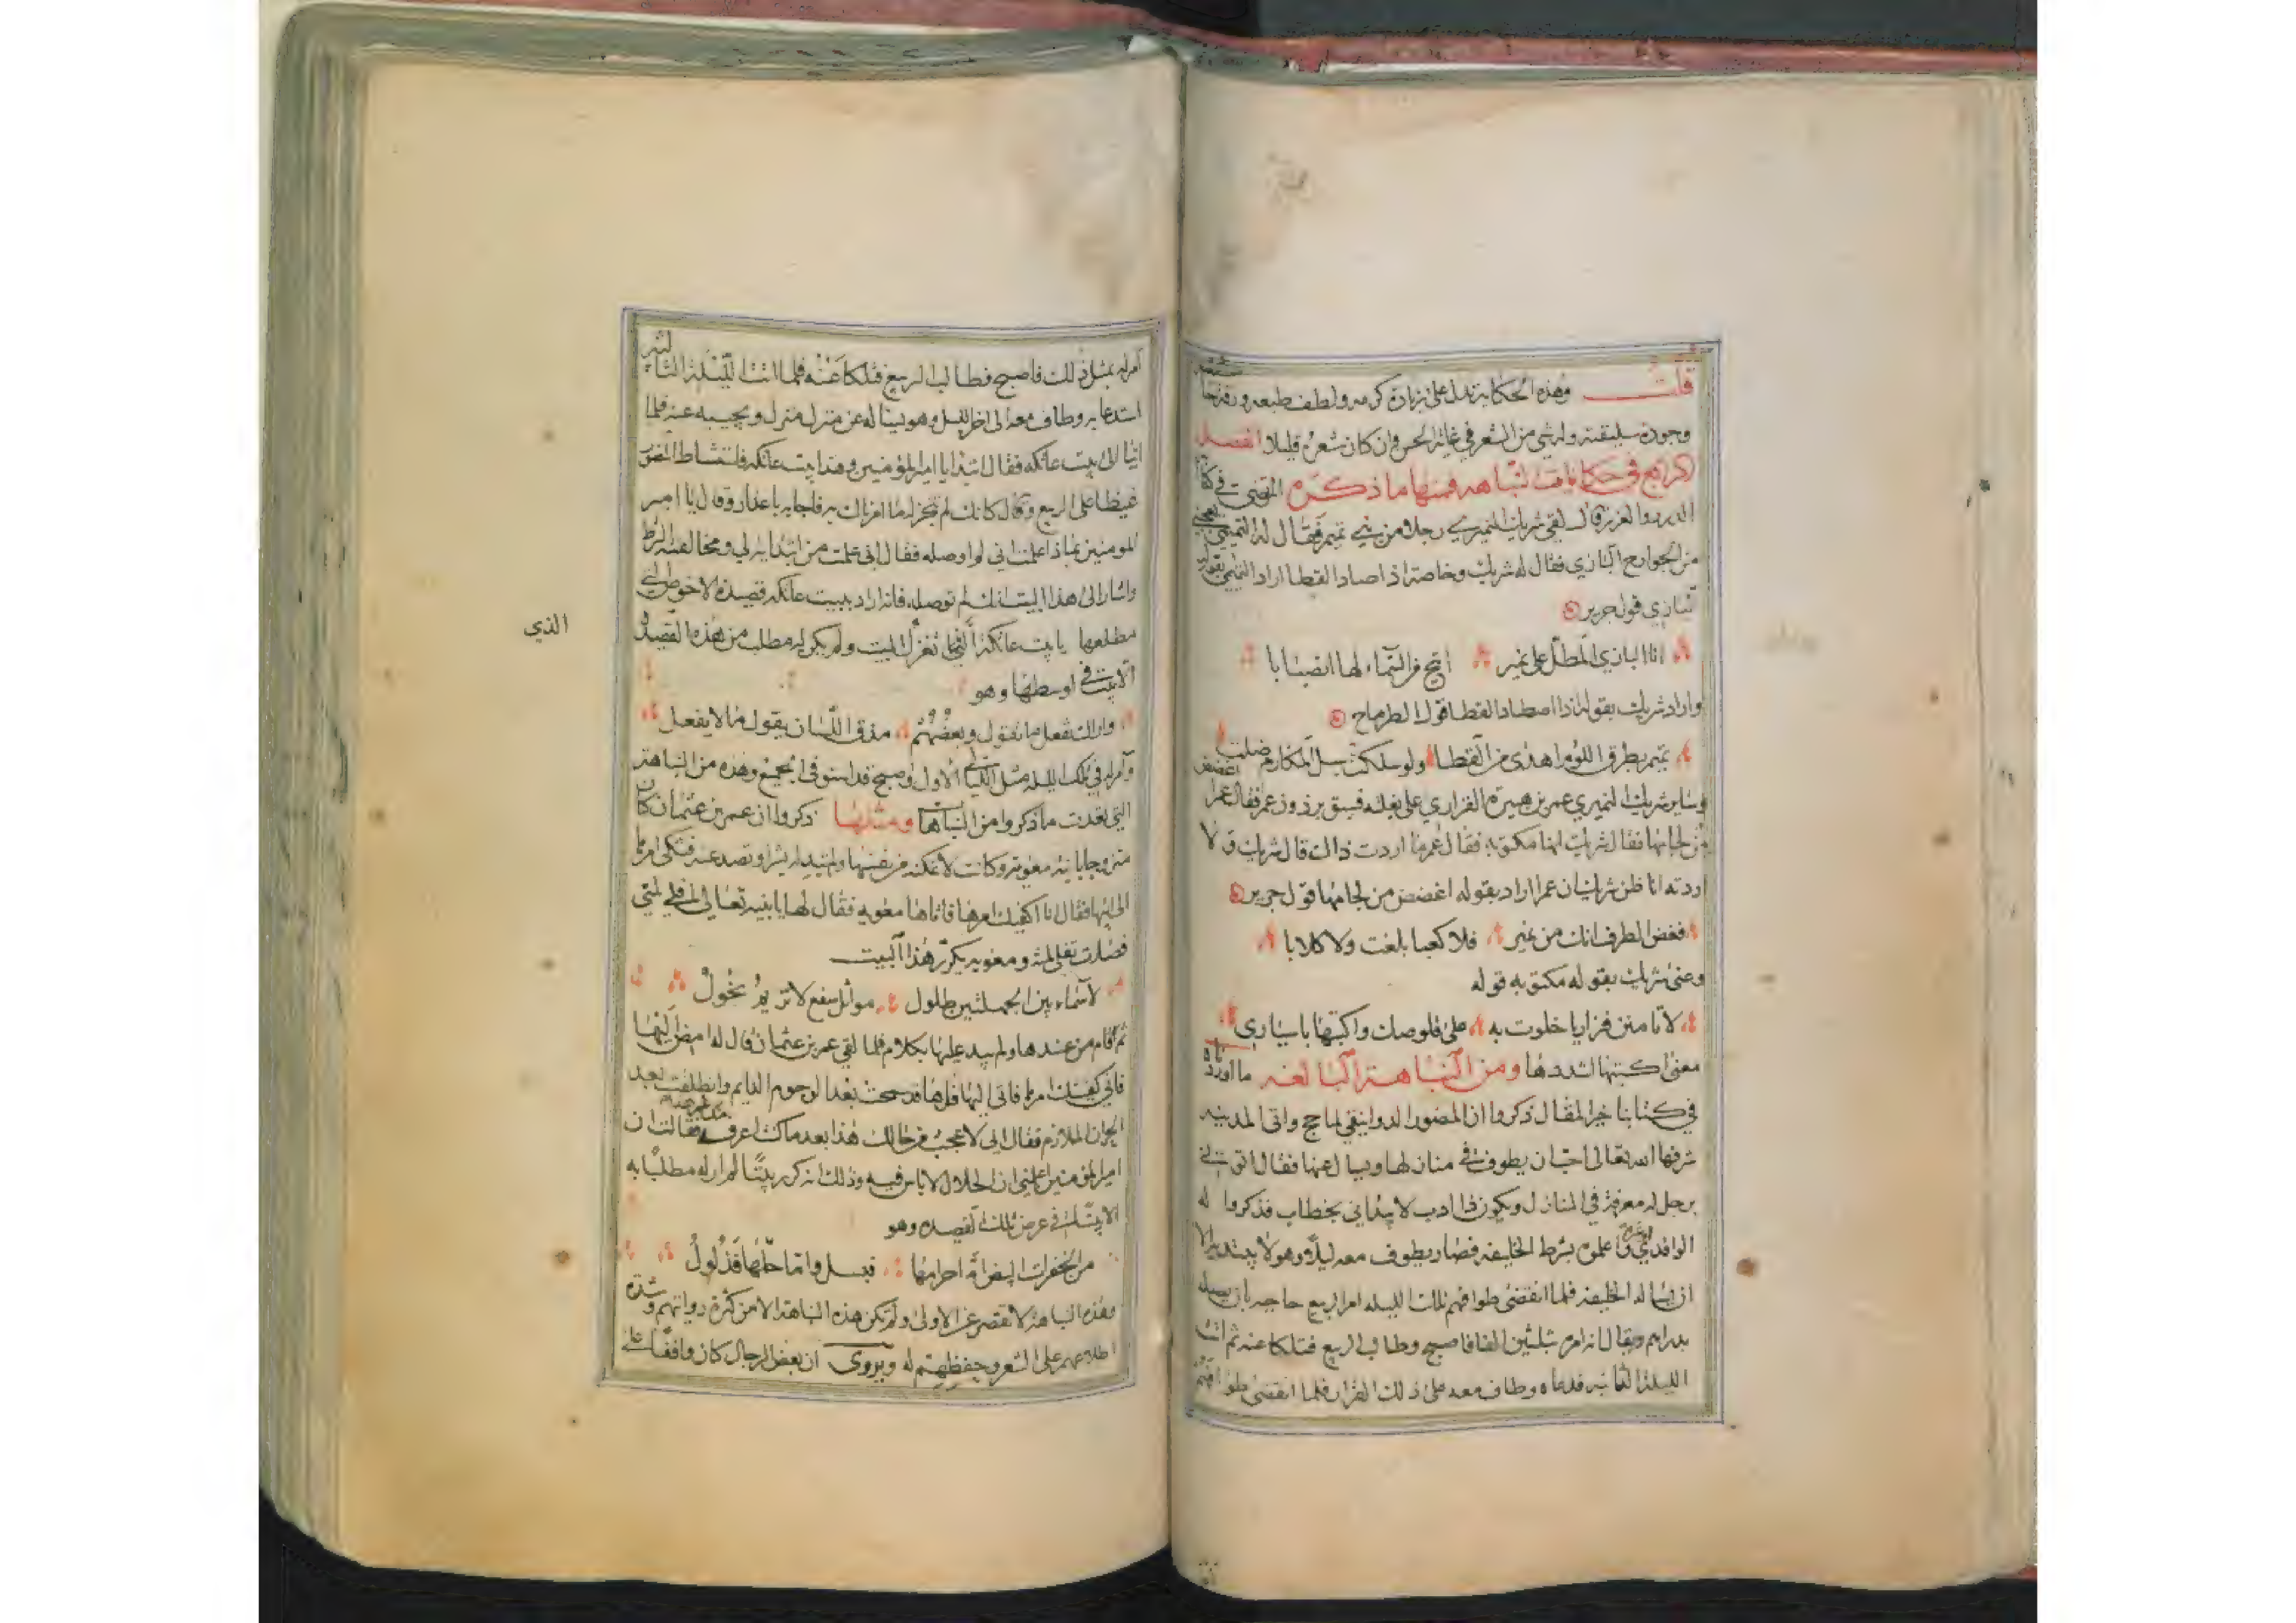 قلت وهذه الحكاية تدل على زيادة كرمه ولطف طبعه ورقة حاشيته
وجودة سليقته وله شي من الشعر في غاية الحسن وان كان شعره قليلا الفصل
الرابع في حكايات النباهه فمنها ما ذكره المرتضى في كتاب
الدرر والغرر قال لقي شريك النميري رجلا من بني تميم فقال له التميمي يعجبني
من الجوارح البازي فقال له شريك وخاصة اذا صاد القطا اراد التميمي بقوله
البازي قول جرير
انا البازي المطل على نمير اتيح من السماء لها انصبابا
واراد شريك بقوله اذا اصطاد القطا قول الطرماح
تميم بطرق اللؤم اهدى من القطا ولو سلكت سبل المكارم ضلت
وساير شريك النميري عمر بن هبيرة الفزاري على بغلة فسبق برذون عمر فقال عمر اغضض
من لجامها فقال شريك انها مكتوبه فقال عمر ما اردت ذالك قال شريك ولا
اردته انا ظن شريك ان عمر اراد بقوله اغضض من لجامها قول جرير
فغض الطرف انك من نمير فلا كعبا بلغت ولا كلابا
وعنى شريك بقوله مكتوبه قوله
لا تامنن فزاريا خلوت به على قلوصك واكتبها باسيار
معنى اكتبها اشددها ومن النباهة البالغه ما اورده
في كتابنا خير المقال ذكروا ان المنصور الدوانيقي لما حج واتى المدينه
شرفها الله تعالى احب ان يطوف في منازلها ويسال عنها فقال ائتوني
برجل له معرفة في المنازل ويكون ذا ادب لا يبداني بخطاب فذكروا له
الواقدي واعلموه بشرط الخليفه فصار يطوف معه ليلا وهو لا يبتديه الا
ان يساله الخليفه فلما انقضى طوافهم تلك الليله امر الربيع حاجبه بان يصله
بدراهم ويقال انه امر له بثلثين الفا فاصبح وطالب الربيع فتلكا عنه ثم اتت
الليلة الثانيه فدعاه وطاف معه على ذلك القرار فلما انقضى طوافهم
امر له بمثل ذلك فاصبح فطالب الربيع فتلكا عنه فلما اتت الليلة الثالثه
استدعا به وطاف معه الى اخر الليل وهو يساله عن منزل منزل ويجيبه عنه فلما
اتيا الى بيت عاتكه فقال ابتدا يا امير المؤمنين وهذا بيت عاتكه فاستشاط المنصور
غيظا على الربيع وقال كانك لم تنجز له ما امرناك به فاجابه باعذار وقال يا امير
المومنين بماذا علمت اني لم اوصله فقال اني علمت من ابتدايه لي ومخالفته الشرط
واشار الى هذا البيت انك لم توصله فانه اراد ببيت عاتكه قصيدة الاحوص التي
مطلعها يا بيت عاتكة الذي اتغزل البيت ولم يكن له مطلب من هذه القصيده
الا بيت في اوسطها وهو
واراك تفعل ما تقول وبعضهم مذق اللسان يقول ما لا يفعل
وامر له في تلك الليله مثل الليالي الاول واصبح قد استوفى الجميع وهذه من النباهة
التي تقدمت ما ذكروا من النباهة ومثلها ذكروا ان عمر بن عثمان كان
متزوجا بابنة معويه وكانت لا تمكنه من نفسها ولم تبد له بشرا وتصد عنه فشكى امرها
الى ابيها فقال انا اكفيك امرها فاتاها معويه فقال لها يا بنيه تعالي افلي لمتي
فصارت تفلي لمته ومعويه يكرر هذا البيت
لاسماء بين الجملتين طلول مواثل سفع لا تريم نحول
ثم قام من عندها ولم يبد عليها بكلام فلما لقي عمر بن عثمان قال له امض اليها
فاني كفيتك امرها فاتى اليها فلقاها قد سمحت بعد الوجوم الدايم وانطلقت بعد
الحران الملازم فقال اني لاعجب من حالك هذا بعد ما كنت اعرفه فقالت ان
امير المؤمنين اعلمني ان الحلال لا باس فيه وذلك انه كرر بيتا لم ار له مطلبا به
الا بيتا في عرض تلك القصيده وهو
من الخفرات البيض اما حرامها فبسل واما حلها فذلول
وهذه النباهة لا تقصر عن الاولى ولم تكن هذه النباهة الا من كثرة روايتهم وشدة
اطلاعهم على الشعر وحفظهم له ويروى ان بعض الرجال كان واقفا على
الذي